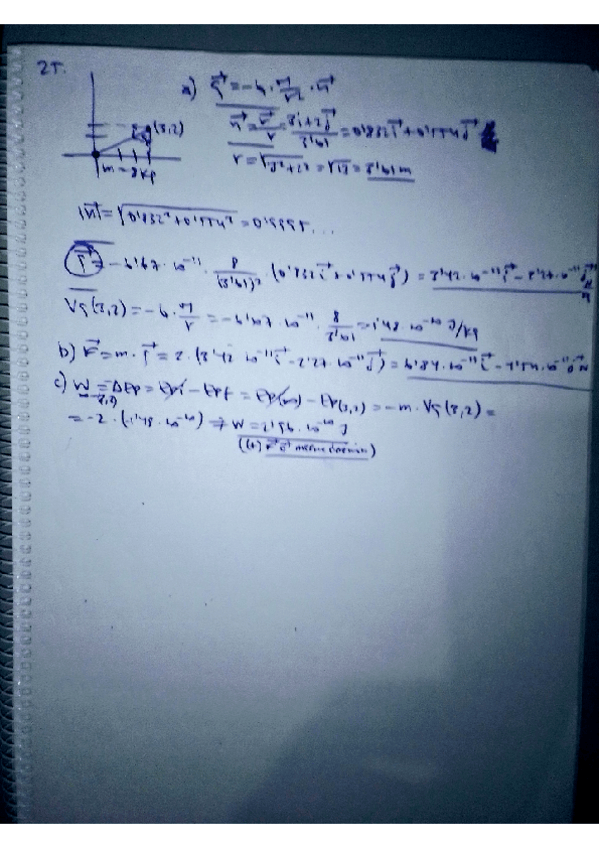 25.
(3,2)
m = 8 kg
a) g⃗ = -G · M/r² · u⃗
u⃗ = r⃗/r = 3i⃗+2j⃗/3'61 = 0'832i⃗ + 0'554j⃗
r = √3²+2² = √13 = 3'61 m
|u⃗| = √0'832² + 0'554² = 0'9995...
g⃗ = -6'67 · 10⁻¹¹ · 8/(3'61)² · (0'832i⃗ + 0'554j⃗) = 3'42 · 10⁻¹¹i⃗ - 2'27 · 10⁻¹¹j⃗ N/kg
Vg(3,2) = -G · M/r = -6'67 · 10⁻¹¹ · 8/3'61 = 1'48 · 10⁻¹⁰ J/kg
b) F⃗ = m · g⃗ = 2 · (3'42 · 10⁻¹¹i⃗ - 2'27 · 10⁻¹¹j⃗) = 6'84 · 10⁻¹¹i⃗ - 4'54 · 10⁻¹¹j⃗ N
c) W = ΔEp = Epi - Epf = Ep(∞) - Ep(3,2) = -m · Vg(3,2) =
= -2 · (-1'48 · 10⁻¹⁰) ⇒ W = 2'96 · 10⁻¹⁰ J